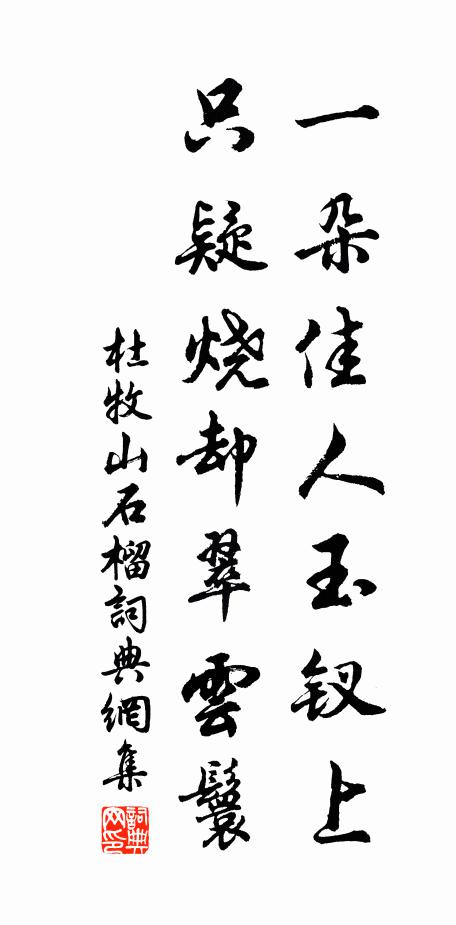 一朵佳人玉钗上
只疑烧却翠雲鬟
杜牧山石榴詞典網集
詞典网印